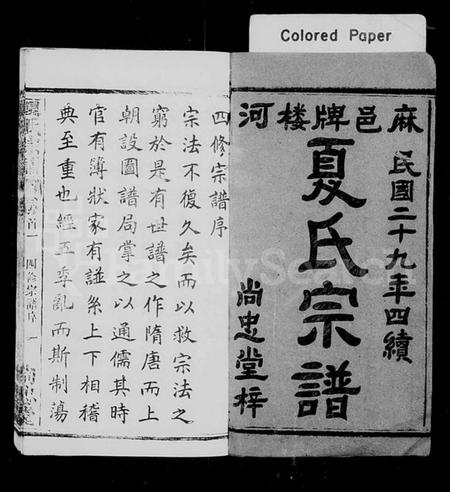 Colored Paper
麻邑牌楼河
民國二十九年四續
夏氏宗譜
尚忠堂梓
四修宗譜序
宗法不復久矣而以救宗法之
窮於是有世譜之作隋唐而上
朝設圖譜局掌之以通儒其時
官有簿狀家有譜系上下相稽
典至重也經五季亂而斯制蕩
卷首一 四修宗譜序 一
FamilySearch